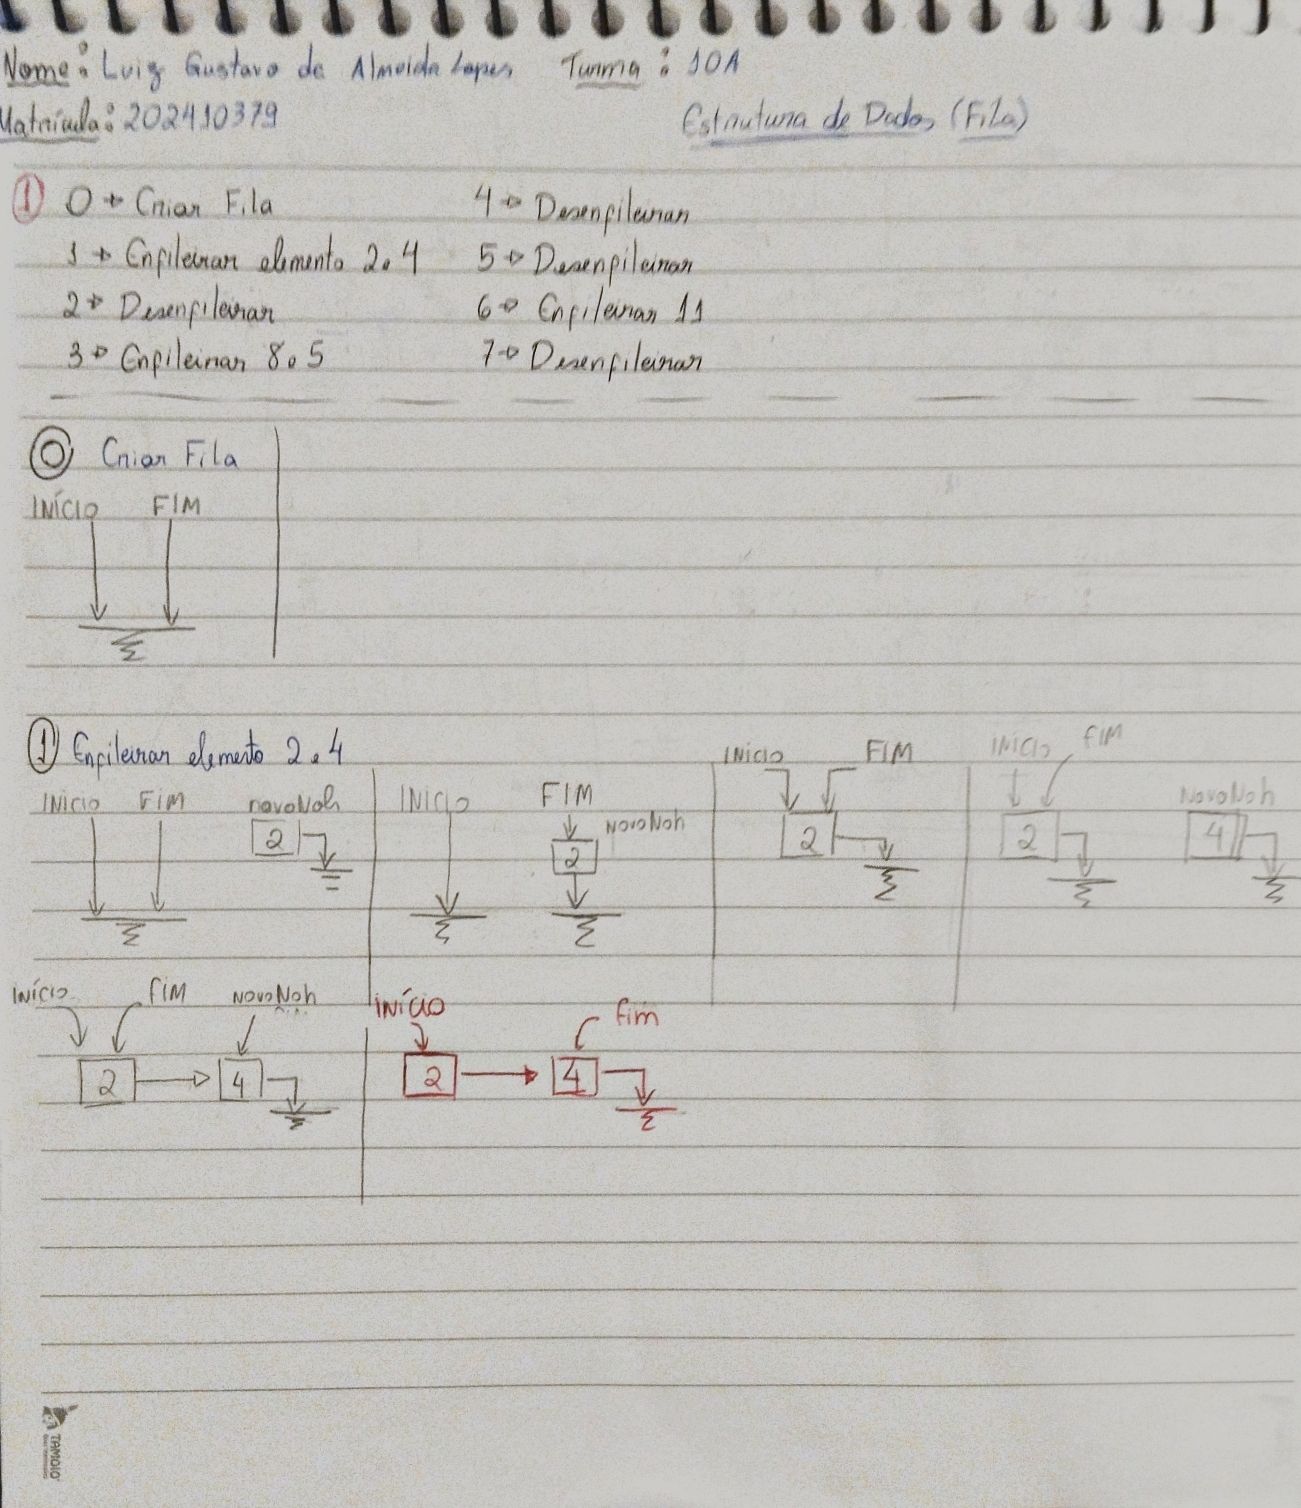 Nome: Luiz Gustavo de Almeida Lopes Turma: 10A
Matrícula: 202410379 Estrutura de Dados (Fila)
1 0 → Criar Fila 4 → Desenfileirar
1 → Enfileirar elemento 2 e 4 5 → Desenfileirar
2 → Desenfileirar 6 → Enfileirar 11
3 → Enfileirar 8 e 5 7 → Desenfileirar
0 Criar Fila
INÍCIO FIM
1 Enfileirar elemento 2 e 4
INICIO FIM novoNoh
2
INICIO FIM
NovoNoh
2
INICIO FIM
2
INICIO FIM
NovoNoh
2 4
INÍCIO FIM NovoNoh
2 → 4
INÍCIO Fim
2 → 4
TAMOIO